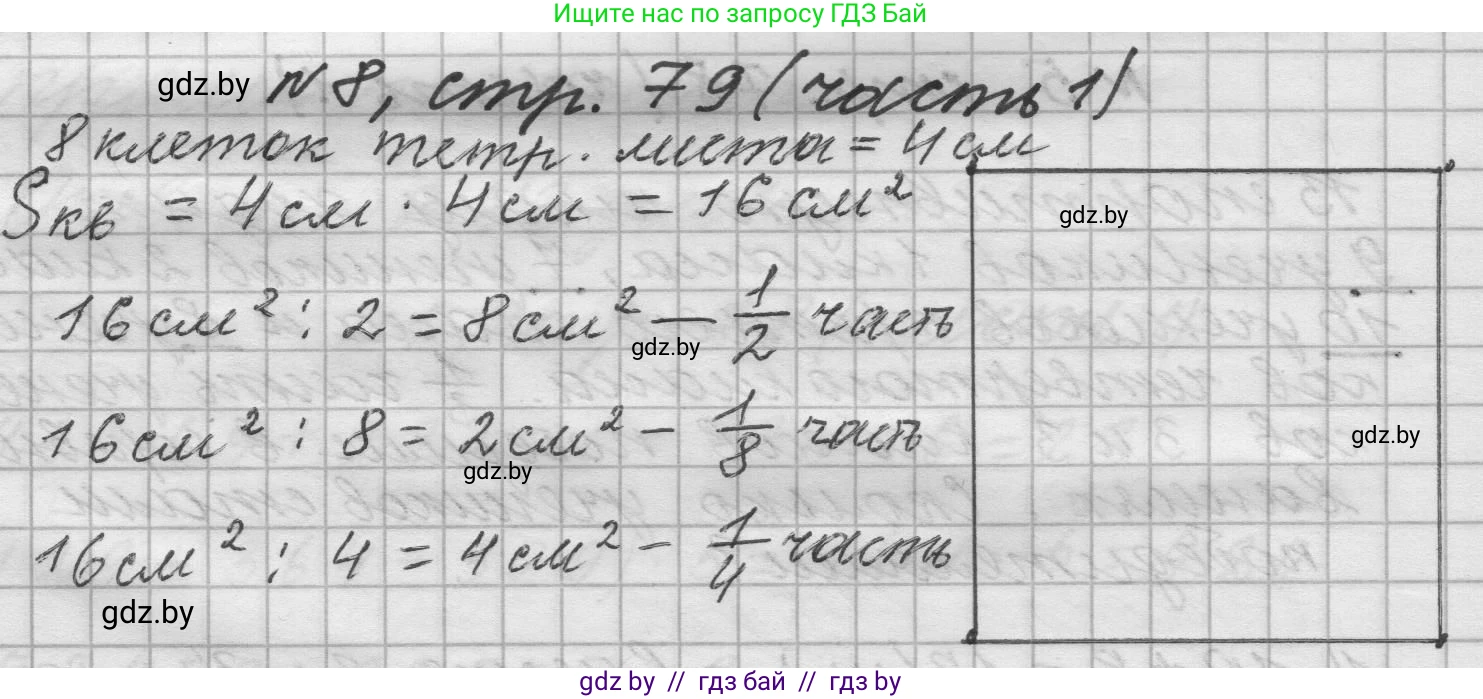 Ищите нас по запросу ГДЗ Бай
gdz.by
№8, стр. 79 (часть 1)
8 клеток тетр. листа = 4 см
Sкв = 4 см · 4 см = 16 см²
gdz.by
16 см² : 2 = 8 см² — 1/2 часть
gdz.by
16 см² : 8 = 2 см² – 1/8 часть
gdz.by
gdz.by
16 см² : 4 = 4 см² – 1/4 часть
gdz.by
gdz by // гдз бай // гдз by